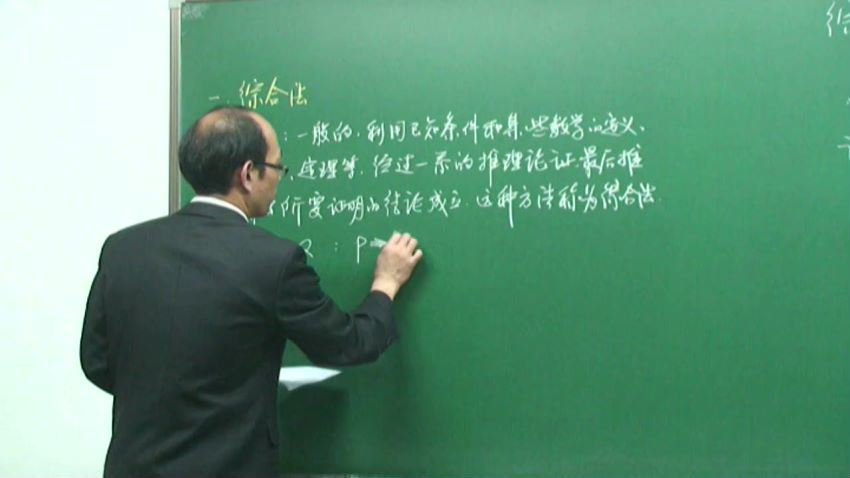 综
一、综合法
：一般的，利用已知条件和某些数学的定义、
、定理等，经过一系的推理论证，最后推
所要证明的结论成立，这种方法称为综合法.
：P⇒